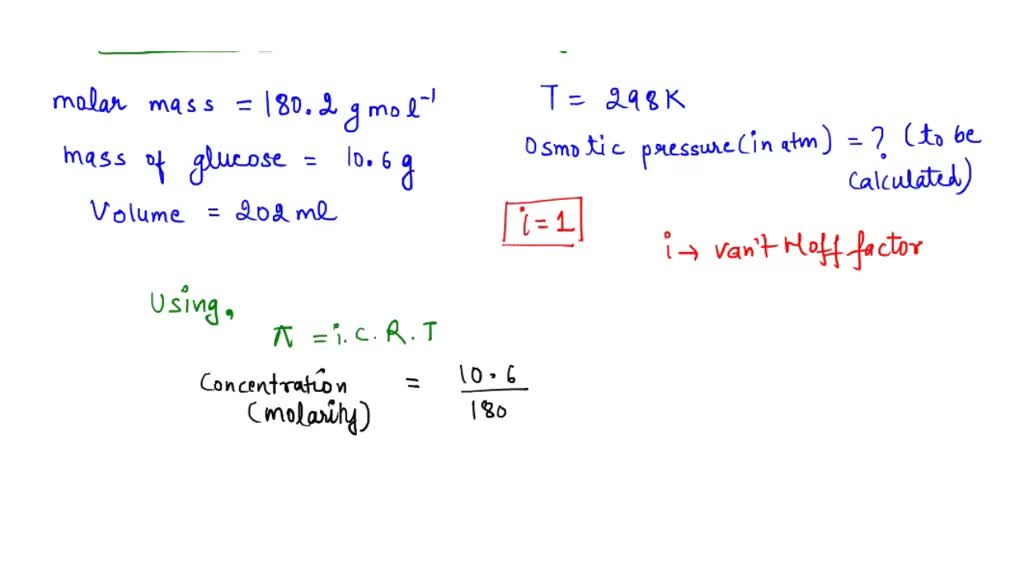 molar mass = 180.2 g mol⁻¹
mass of glucose = 10.6 g
Volume = 202 ml
T = 298K
Osmotic pressure (in atm) = ? (to be
calculated)
i = 1
i → van't Hoff factor
Using,
π = i. C. R. T
Concentration = 10.6
(molarity) 180